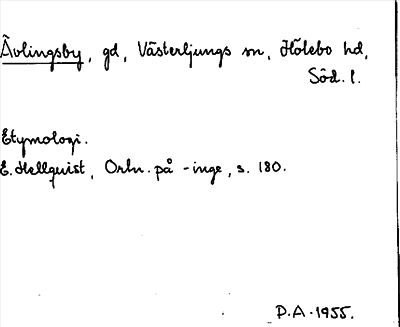 Ävlingsby, gd, Västerljungs sn, Hölebo hd,
Söd. l.
Etymologi.
E. Hellquist, Ortn. på -inge, s. 180.
P.A. 1955.